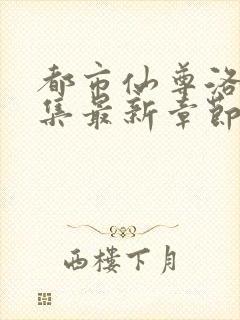 都市仙尊洛
集最新章节
西楼下月